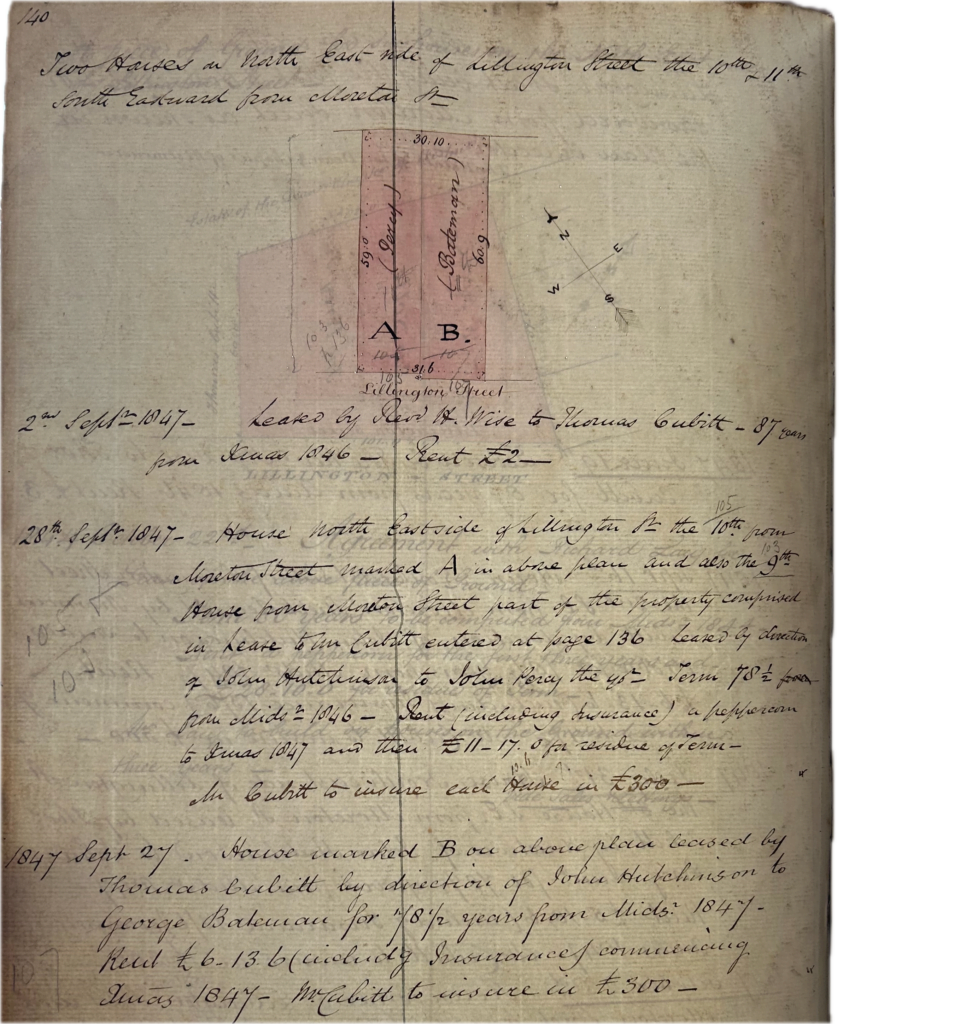 140
Two Houses on North East side of Lillington Street the 10th & 11th
South Eastward from Moreton St
30.10
59.0
(Percy)
(Bateman)
60.9
N
E
W
S
A
B.
31.6
Lillington Street
2nd Septr 1847 - Leased by Revd H. Wise to Thomas Cubitt - 87 years
from Xmas 1846 - Rent £2 -
LILLINGTON STREET
105
28th Septr 1847 - House North East side of Lillington St the 10th from
103
Moreton Street marked A in above plan and also the 9th
House from Moreton Street part of the property comprised
in Lease to Mr Cubitt entered at page 136 Leased by direction
of John Hutchinson to John Percy the yr Term 78½ from
from Midsr 1846 - Rent (including Insurance) a peppercorn
to Xmas 1847 and then £11-17.0 for residue of Term -
Mr Cubitt to insure each House in £300 -
1847 Sept 27. House marked B on above plan leased by
Thomas Cubitt by direction of John Hutchinson to
George Bateman for 78½ years from Midsr 1847 -
Rent £6-13 6 (includg Insurance) commencing
Xmas 1847 - Mr Cubitt to insure in £300 -
107